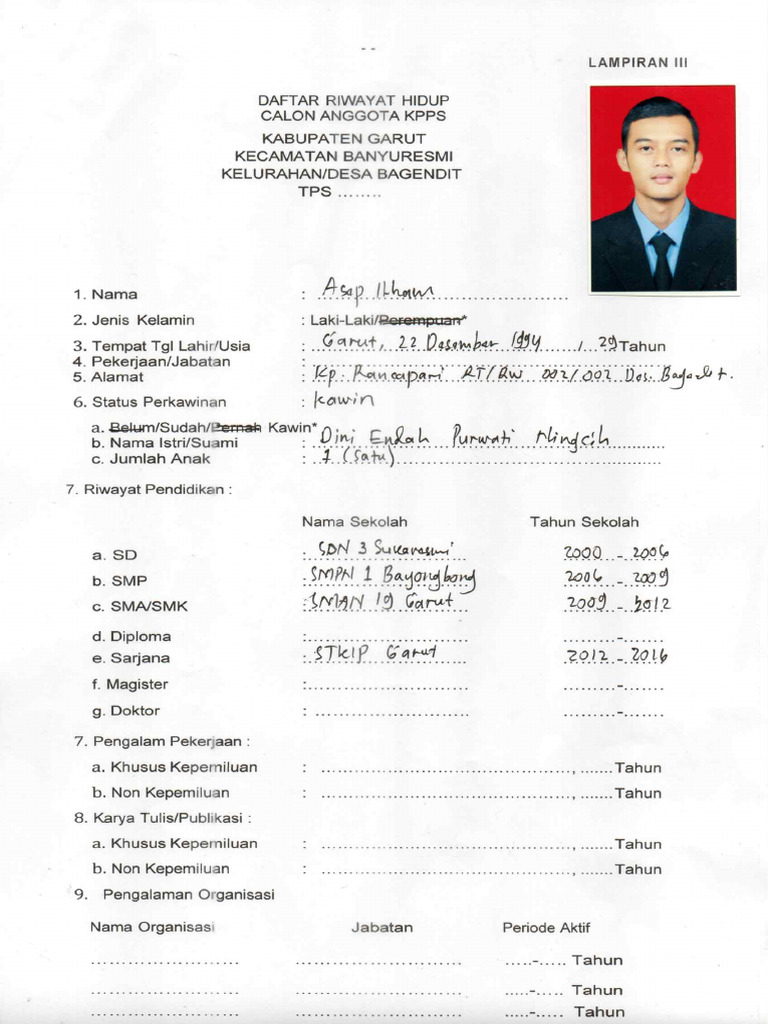 LAMPIRAN III
DAFTAR RIWAYAT HIDUP
CALON ANGGOTA KPPS
KABUPATEN GARUT
KECAMATAN BANYURESMI
KELURAHAN/DESA BAGENDIT
TPS ........
1. Nama : Asep Ilham
2. Jenis Kelamin : Laki-Laki/Perempuan*
3. Tempat Tgl Lahir/Usia : Garut, 22 Desember 1994 / 29 Tahun
4. Pekerjaan/Jabatan :
5. Alamat : Kp. Rancapari RT/RW 002/002 Des. Bagendit.
6. Status Perkawinan : kawin
a. Belum/Sudah/Pernah Kawin*
b. Nama Istri/Suami : Dini Endah Purwati Ningsih
c. Jumlah Anak : 1 (Satu)
7. Riwayat Pendidikan :
Nama Sekolah Tahun Sekolah
a. SD : SDN 3 Sukarasmi 2000 - 2006
b. SMP : SMPN 1 Bayongbong 2006 - 2009
c. SMA/SMK : SMAN 19 Garut 2009 - 2012
d. Diploma : -
e. Sarjana : STKIP Garut 2012 - 2016
f. Magister : -
g. Doktor : -
7. Pengalam Pekerjaan :
a. Khusus Kepemiluan : , Tahun
b. Non Kepemiluan : , Tahun
8. Karya Tulis/Publikasi :
a. Khusus Kepemiluan : , Tahun
b. Non Kepemiluan : , Tahun
9. Pengalaman Organisasi
Nama Organisasi Jabatan Periode Aktif
- Tahun
- Tahun
- Tahun